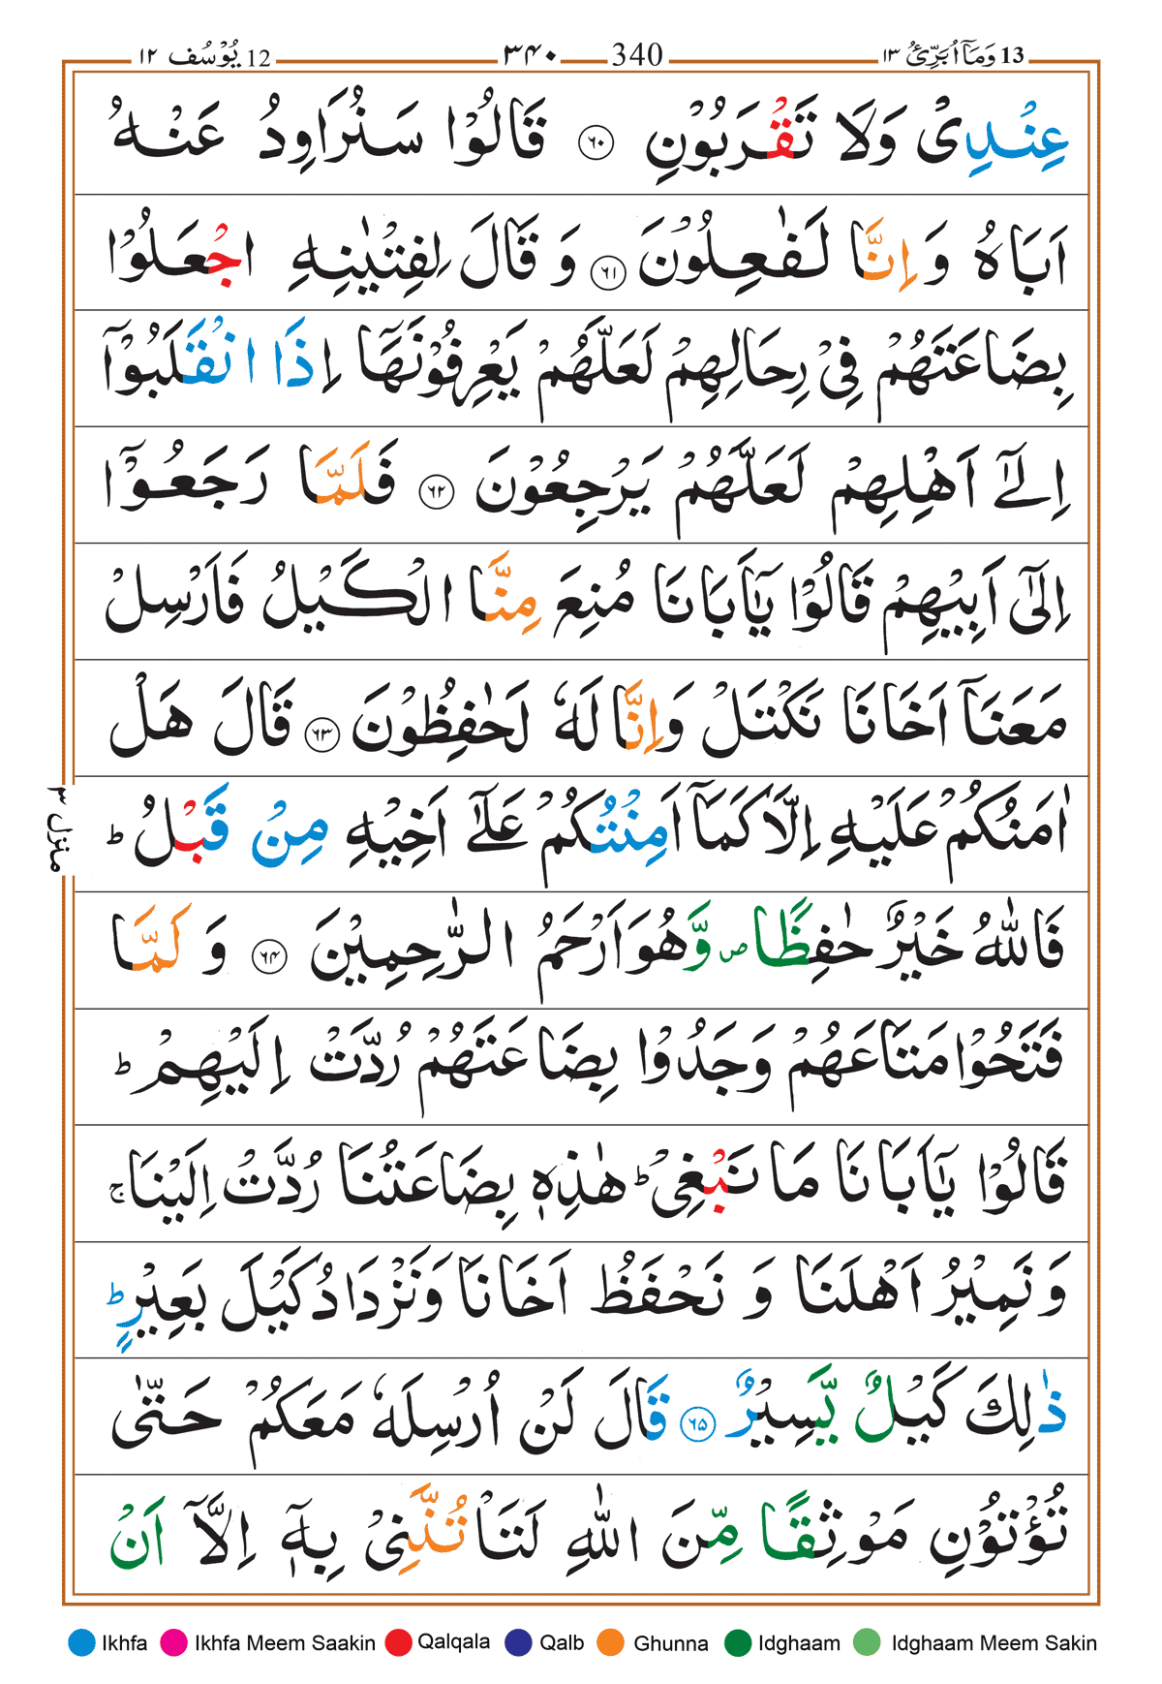 13 وَمَاۤ اُبَرِّئُ ۱۳ 340 ۳۴۰ 12 يُوْسُف ۱۲
عِنْدِىْ وَلَا تَقْرَبُوْنِ ۶۰ قَالُوْا سَنُرَاوِدُ عَنْهُ
اَبَاهُ وَ اِنَّا لَفٰعِلُوْنَ ۶۱ وَ قَالَ لِفِتْيٰنِهِ اجْعَلُوْا
بِضَاعَتَهُمْ فِىْ رِحَالِهِمْ لَعَلَّهُمْ يَعْرِفُوْنَهَاۤ اِذَا انْقَلَبُوْاۤ
اِلٰٓى اَهْلِهِمْ لَعَلَّهُمْ يَرْجِعُوْنَ ۶۲ فَلَمَّا رَجَعُوْۤا
اِلٰٓى اَبِيْهِمْ قَالُوْا يٰۤاَبَانَا مُنِعَ مِنَّا الْكَيْلُ فَاَرْسِلْ
مَعَنَاۤ اَخَانَا نَكْتَلْ وَاِنَّا لَهٗ لَحٰفِظُوْنَ ۶۳ قَالَ هَلْ
اٰمَنُكُمْ عَلَيْهِ اِلَّا كَمَاۤ اَمِنْتُكُمْ عَلٰٓى اَخِيْهِ مِنْ قَبْلُ ؕ
فَاللّٰهُ خَيْرٌ حٰفِظًا ص وَّهُوَ اَرْحَمُ الرّٰحِمِيْنَ ۶۴ وَ لَمَّا
فَتَحُوْا مَتَاعَهُمْ وَجَدُوْا بِضَاعَتَهُمْ رُدَّتْ اِلَيْهِمْ ؕ
قَالُوْا يٰۤاَبَانَا مَا نَبْغِىْ ؕ هٰذِهٖ بِضَاعَتُنَا رُدَّتْ اِلَيْنَا ۚ
وَ نَمِيْرُ اَهْلَنَا وَ نَحْفَظُ اَخَانَا وَنَزْدَادُ كَيْلَ بَعِيْرٍ ؕ
ذٰلِكَ كَيْلٌ يَّسِيْرٌ ۶۵ قَالَ لَنْ اُرْسِلَهٗ مَعَكُمْ حَتّٰى
تُؤْتُوْنِ مَوْثِقًا مِّنَ اللّٰهِ لَتَاْتُنَّنِىْ بِهٖۤ اِلَّاۤ اَنْ
منزل ۳
Ikhfa Ikhfa Meem Saakin Qalqala Qalb Ghunna Idghaam Idghaam Meem Sakin